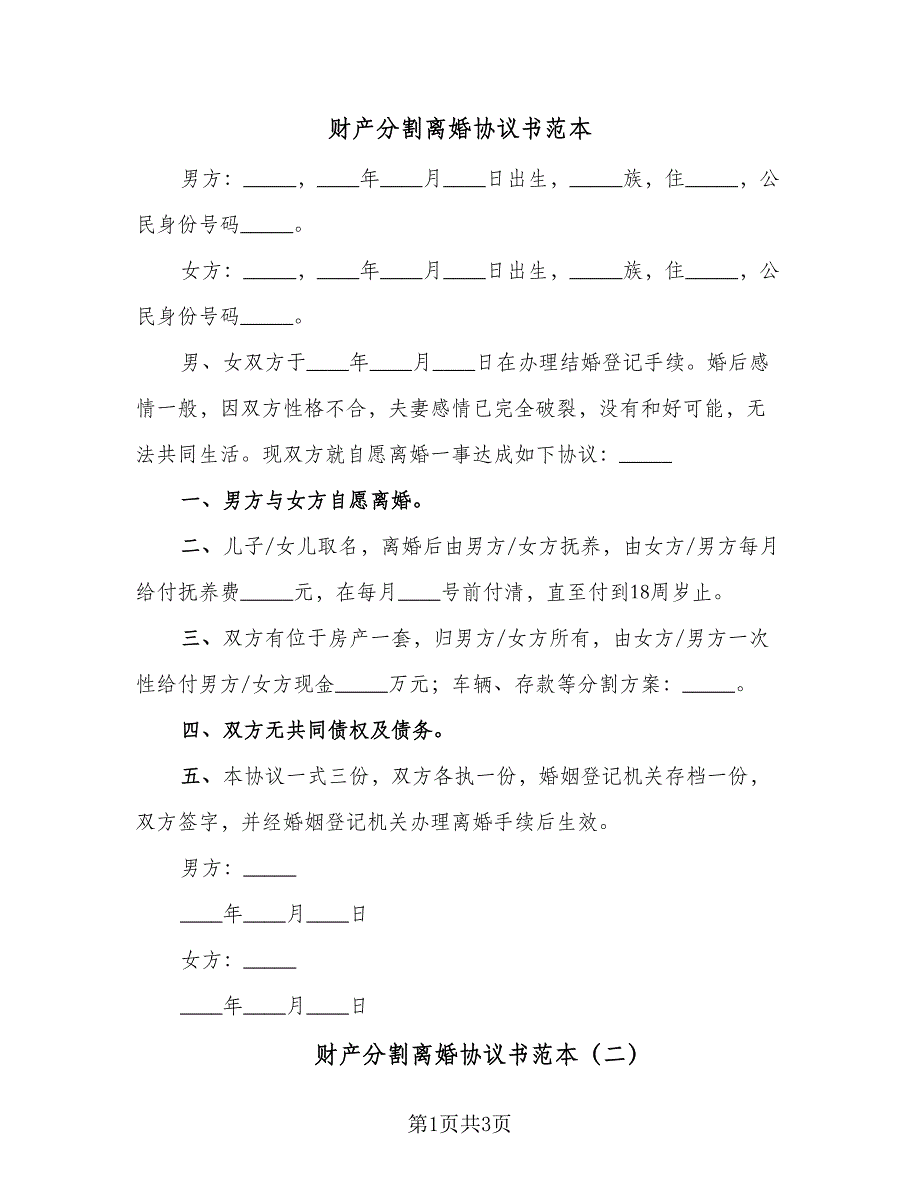 财产分割离婚协议书范本
男方：_____，____年____月____日出生，_____族，住_____，公
民身份号码_____。
女方：_____，____年____月____日出生，_____族，住_____，公
民身份号码_____。
男、女双方于____年____月____日在办理结婚登记手续。婚后感
情一般，因双方性格不合，夫妻感情已完全破裂，没有和好可能，无
法共同生活。现双方就自愿离婚一事达成如下协议：_____
一、男方与女方自愿离婚。
二、儿子/女儿取名，离婚后由男方/女方抚养，由女方/男方每月
给付抚养费_____元，在每月____号前付清，直至付到18周岁止。
三、双方有位于房产一套，归男方/女方所有，由女方/男方一次
性给付男方/女方现金_____万元；车辆、存款等分割方案：_____。
四、双方无共同债权及债务。
五、本协议一式三份，双方各执一份，婚姻登记机关存档一份，
双方签字，并经婚姻登记机关办理离婚手续后生效。
男方：_____
____年____月____日
女方：_____
____年____月____日
财产分割离婚协议书范本（二）
第1页共3页